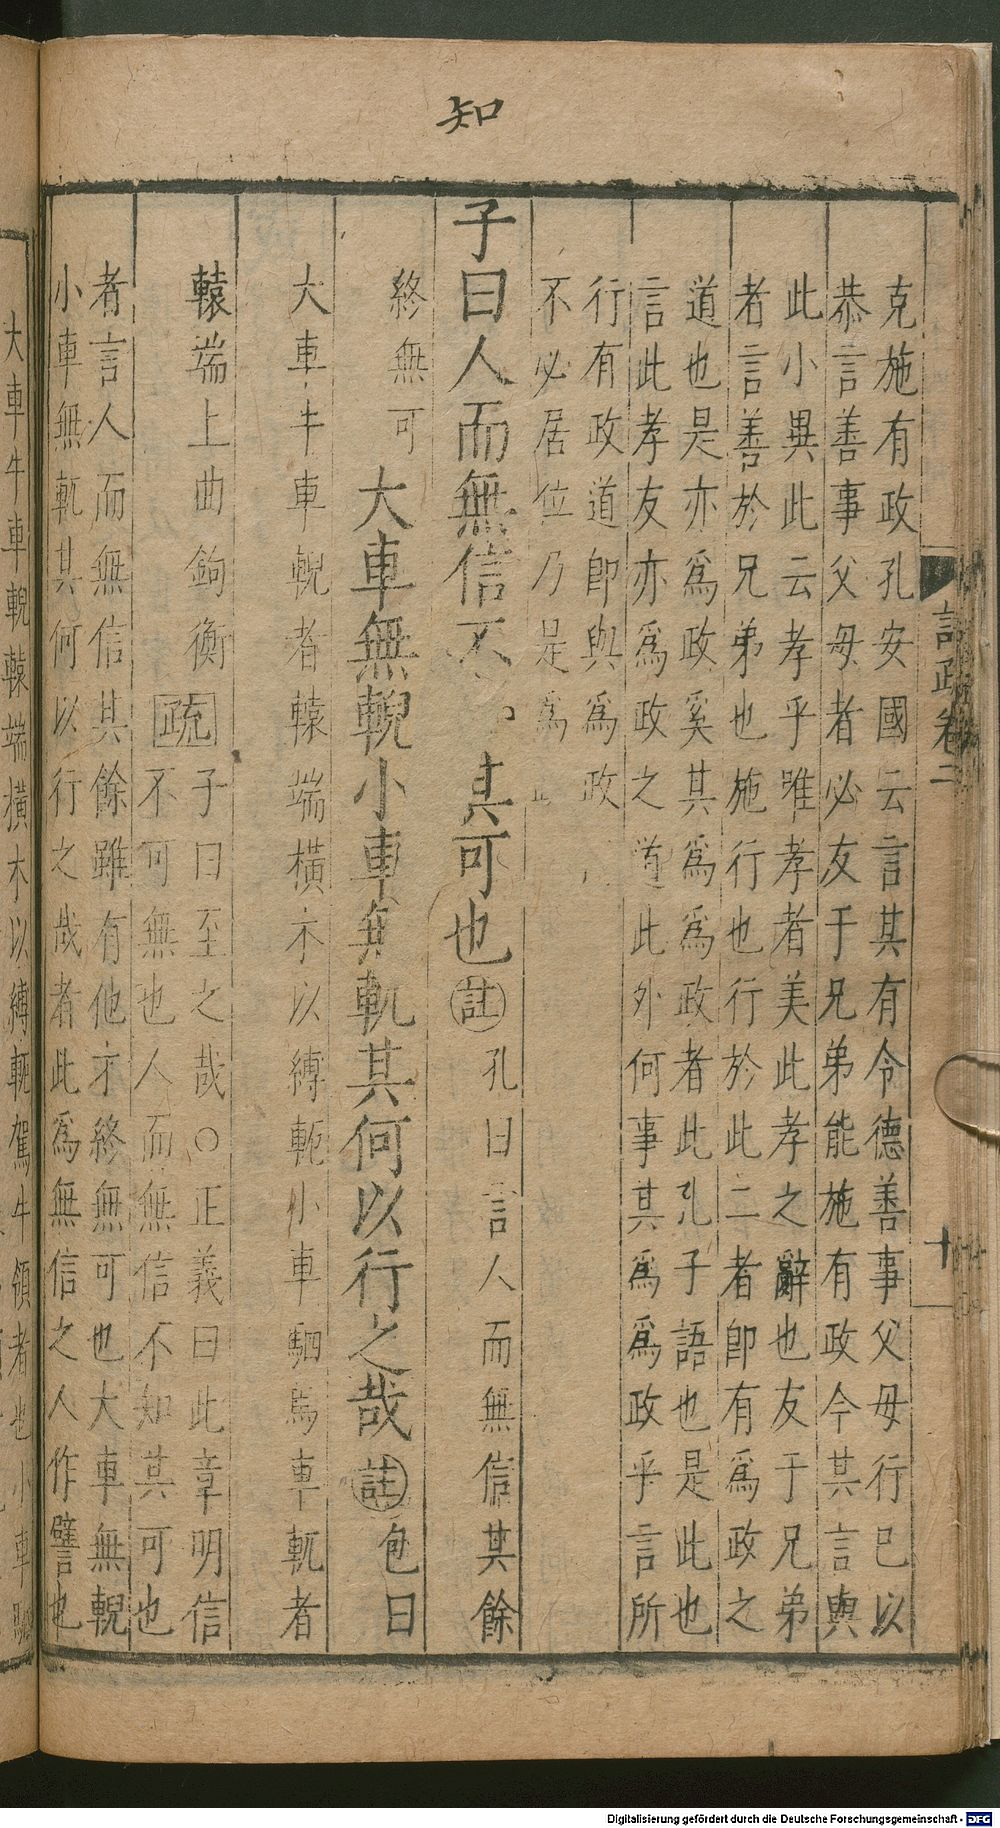 知
語政卷二
十
克施有政孔安國云言其有令德善事父母行已以
恭言善事父母者必友于兄弟能施有政令其言與
此小異此云孝乎唯孝者美此孝之辭也友于兄弟
者言善於兄弟也施行也行於此二者即有爲政之
道也是亦爲政奚其爲爲政者此孔子語也是此也
言此孝友亦爲政之道此外何事其爲爲政乎言所
行有政道即與爲政
不必居位乃是爲
子曰人而無信不 其可也註孔曰言人而無信其餘
終無可大車無輗小車無軏其何以行之哉註包曰
大車牛車輗者轅端橫木以縛軛小車駟馬車軏者
轅端上曲鉤衡疏子曰至之哉○正義曰此章明信
不可無也人而無信不知其可也
者言人而無信其餘雖有他才終無可也大車無輗
小車無軏其何以行之哉者此爲無信之人作譬也
大車牛車輗轅端橫木以縛軛駕牛領者也小車
Digitalisierung gefördert durch die Deutsche Forschungsgemeinschaft - DFG